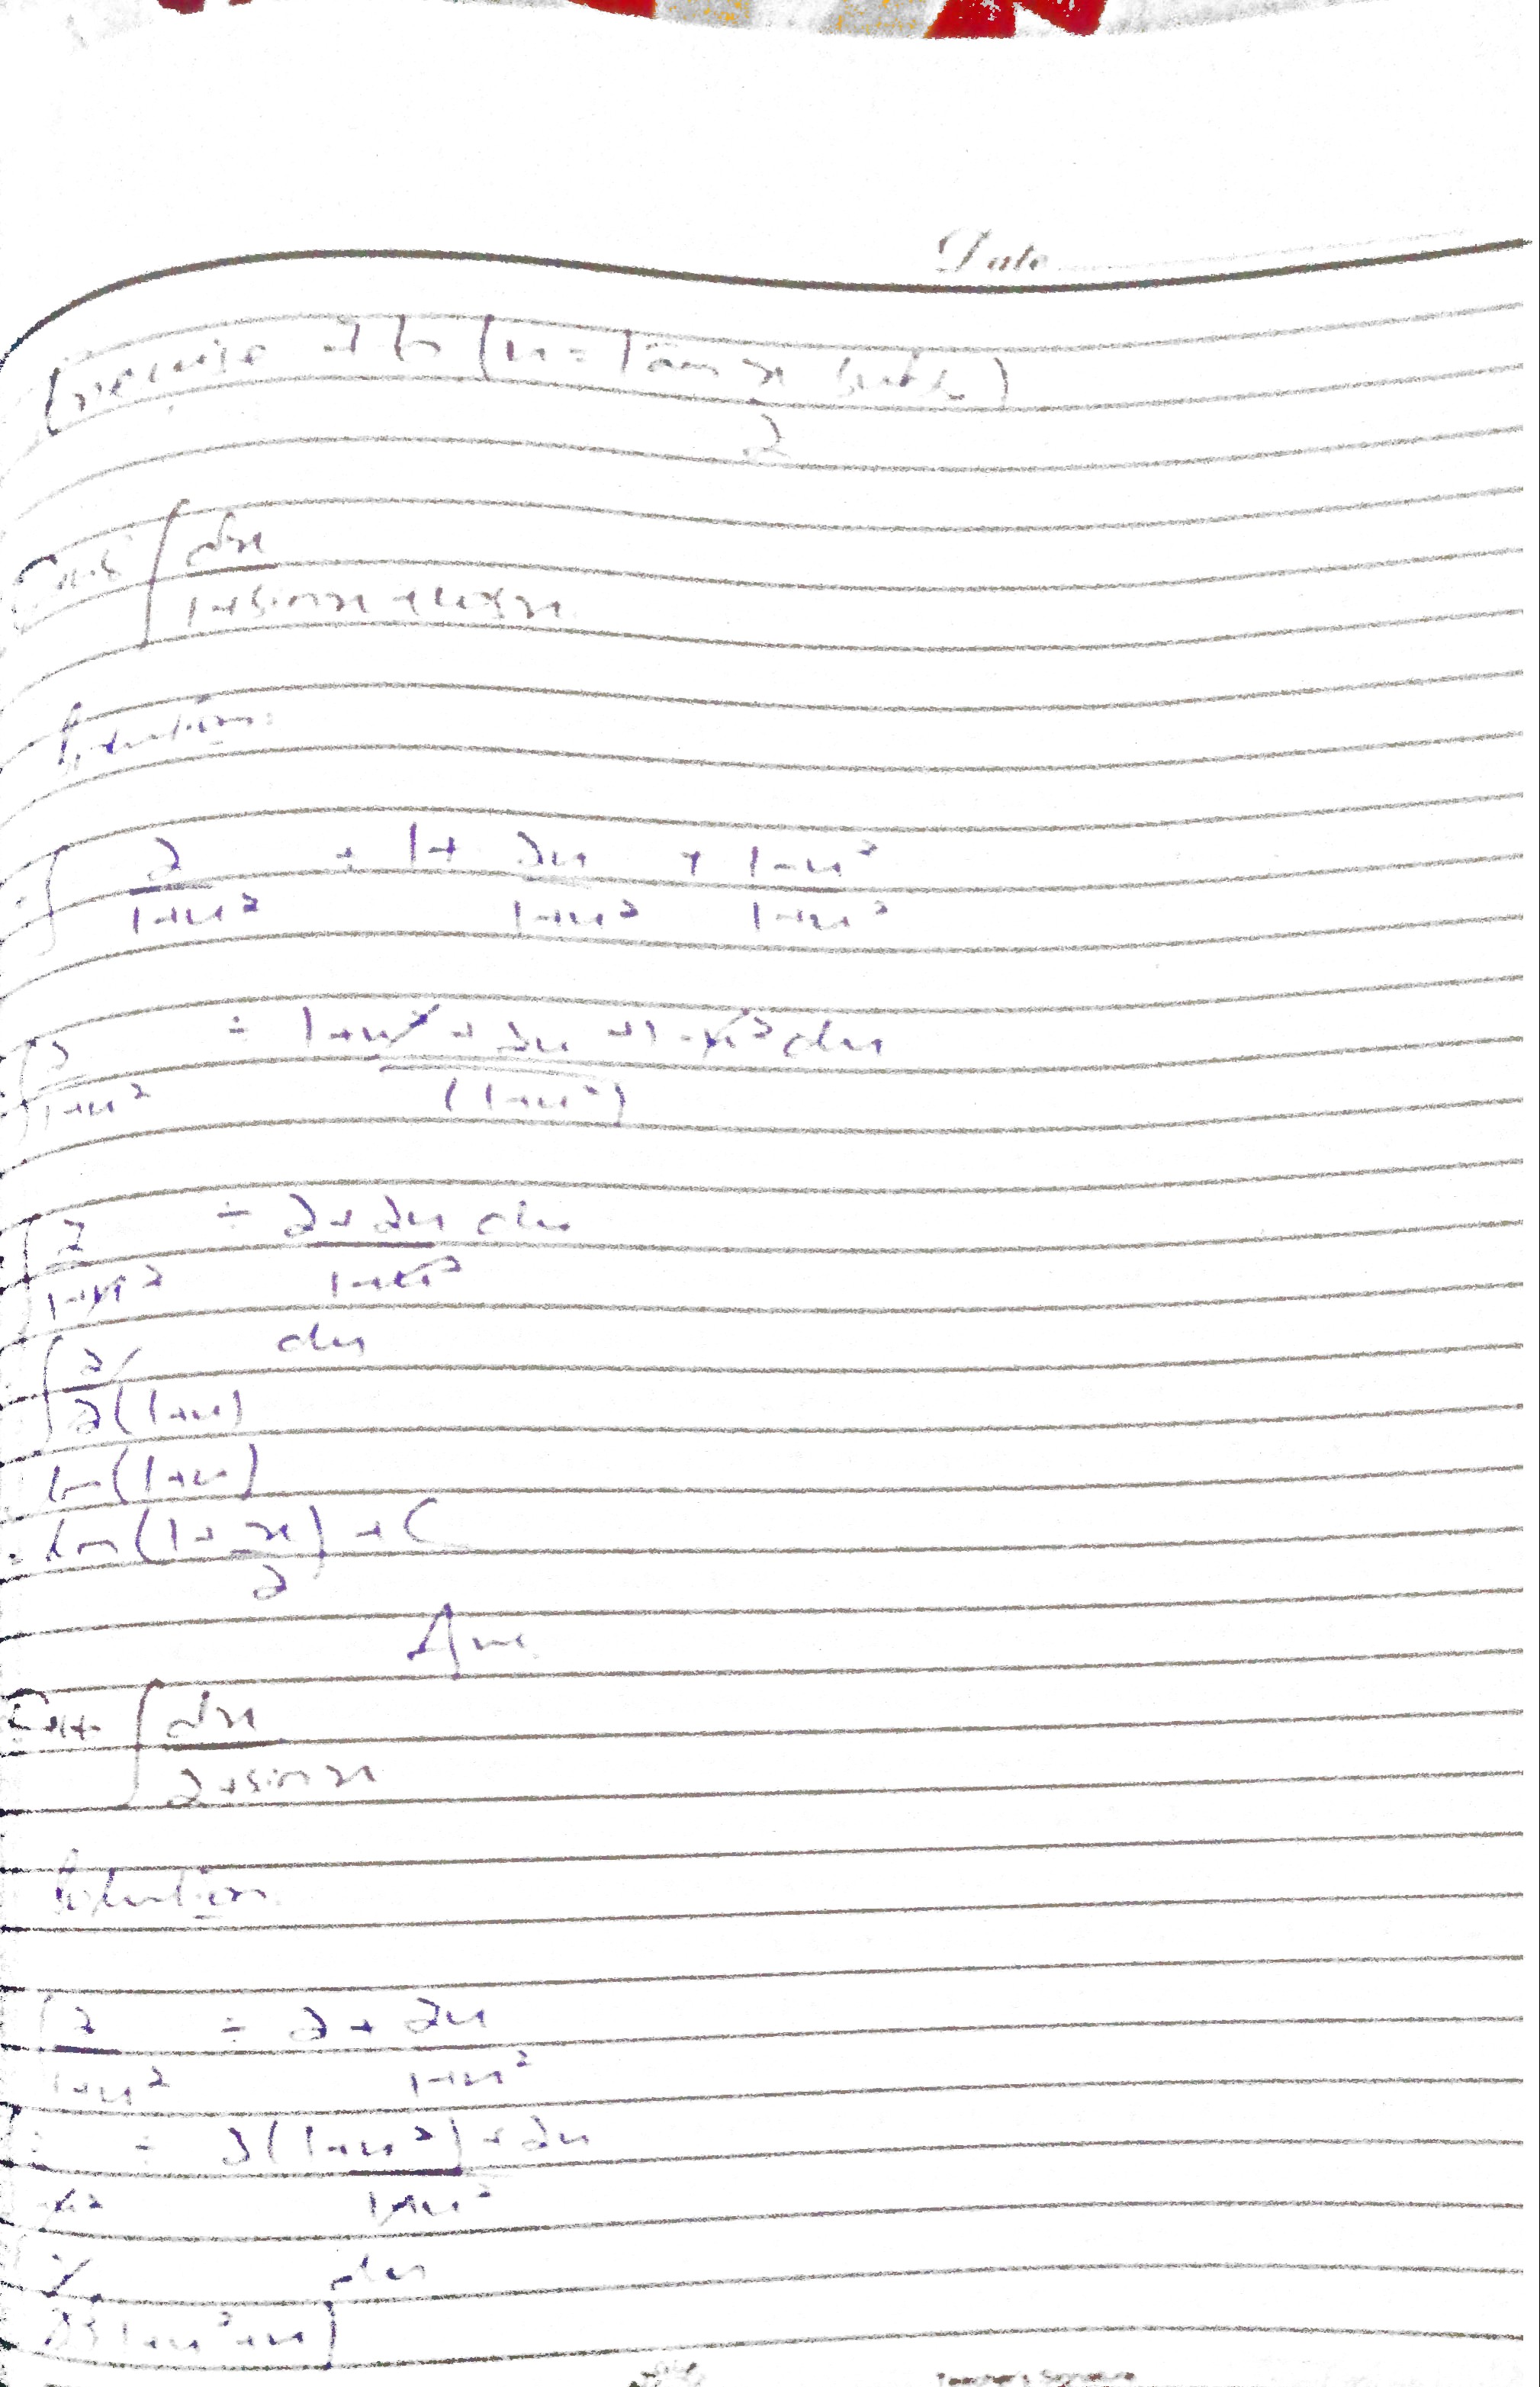 Date
Exercise 2b (u = Tan x/2 subst)
Q∫ dx / 1+sinx+cosx
Solution:
= ∫ 2/1+u² ÷ 1 + 2u/1+u² + 1-u²/1+u²
∫ 2/1+u² ÷ 1+u²+2u+1-u² du / (1+u²)
∫ 2/1+u² ÷ 2+2u du / 1+u²
∫ 2/2(1+u) du
ln(1+u)
= ln(1+x/2)+C
Ans
∫ dx / 2+sinx
Solution
∫ 2/1+u² ÷ 2 + 2u/1+u²
÷ 2(1+u²)+2u / 1+u²
2{1+u²+u} du
Teacher's Signature